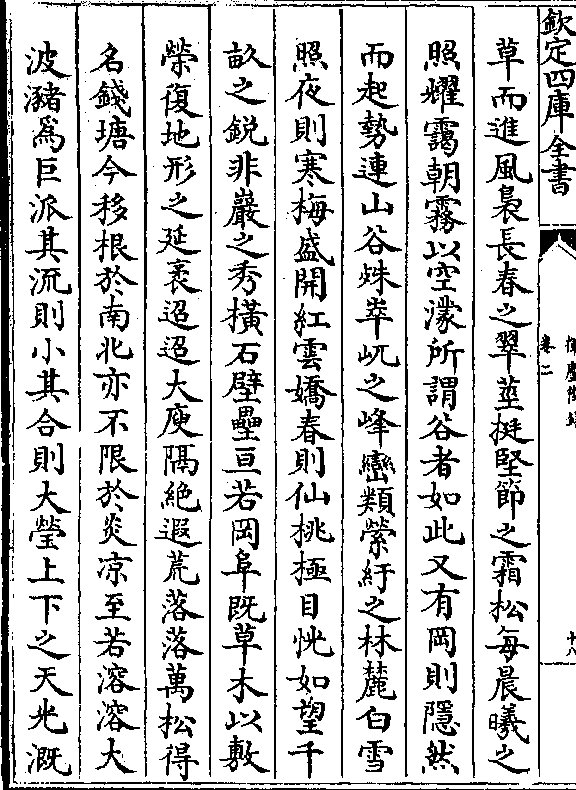 欽定四庫全書
卷二
十八
草而進風裊長春之翠莖挺堅節之霜松每晨曦之
照耀靄朝霧以空濛所謂谷者如此又有岡則隱然
而起勢連山谷烞崒屼之峰巒類縈紆之林麓白雪
照夜則寒梅盛開紅雲嬌春則仙桃極目恍如望千
畝之鋭非巖之秀橫石壁壘亘若岡阜既草木以敷
榮復地形之延袤迢迢大庾隔絶遐荒落落萬松得
名錢塘今移根於南北亦不限於炎凉至若溶溶大
波瀦為巨派其流則小其合則大瑩上下之天光溉